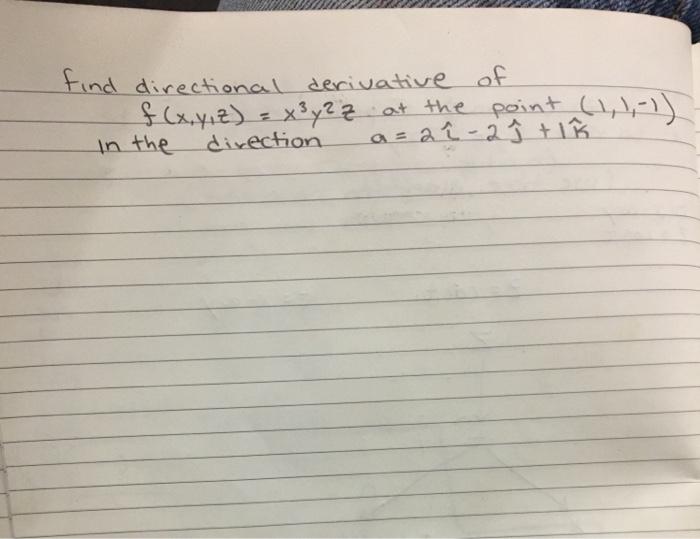 find directional derivative of
f(x,y,z) = x³y²z at the point (1,1,-1)
In the direction a = 2î - 2ĵ + 1k̂